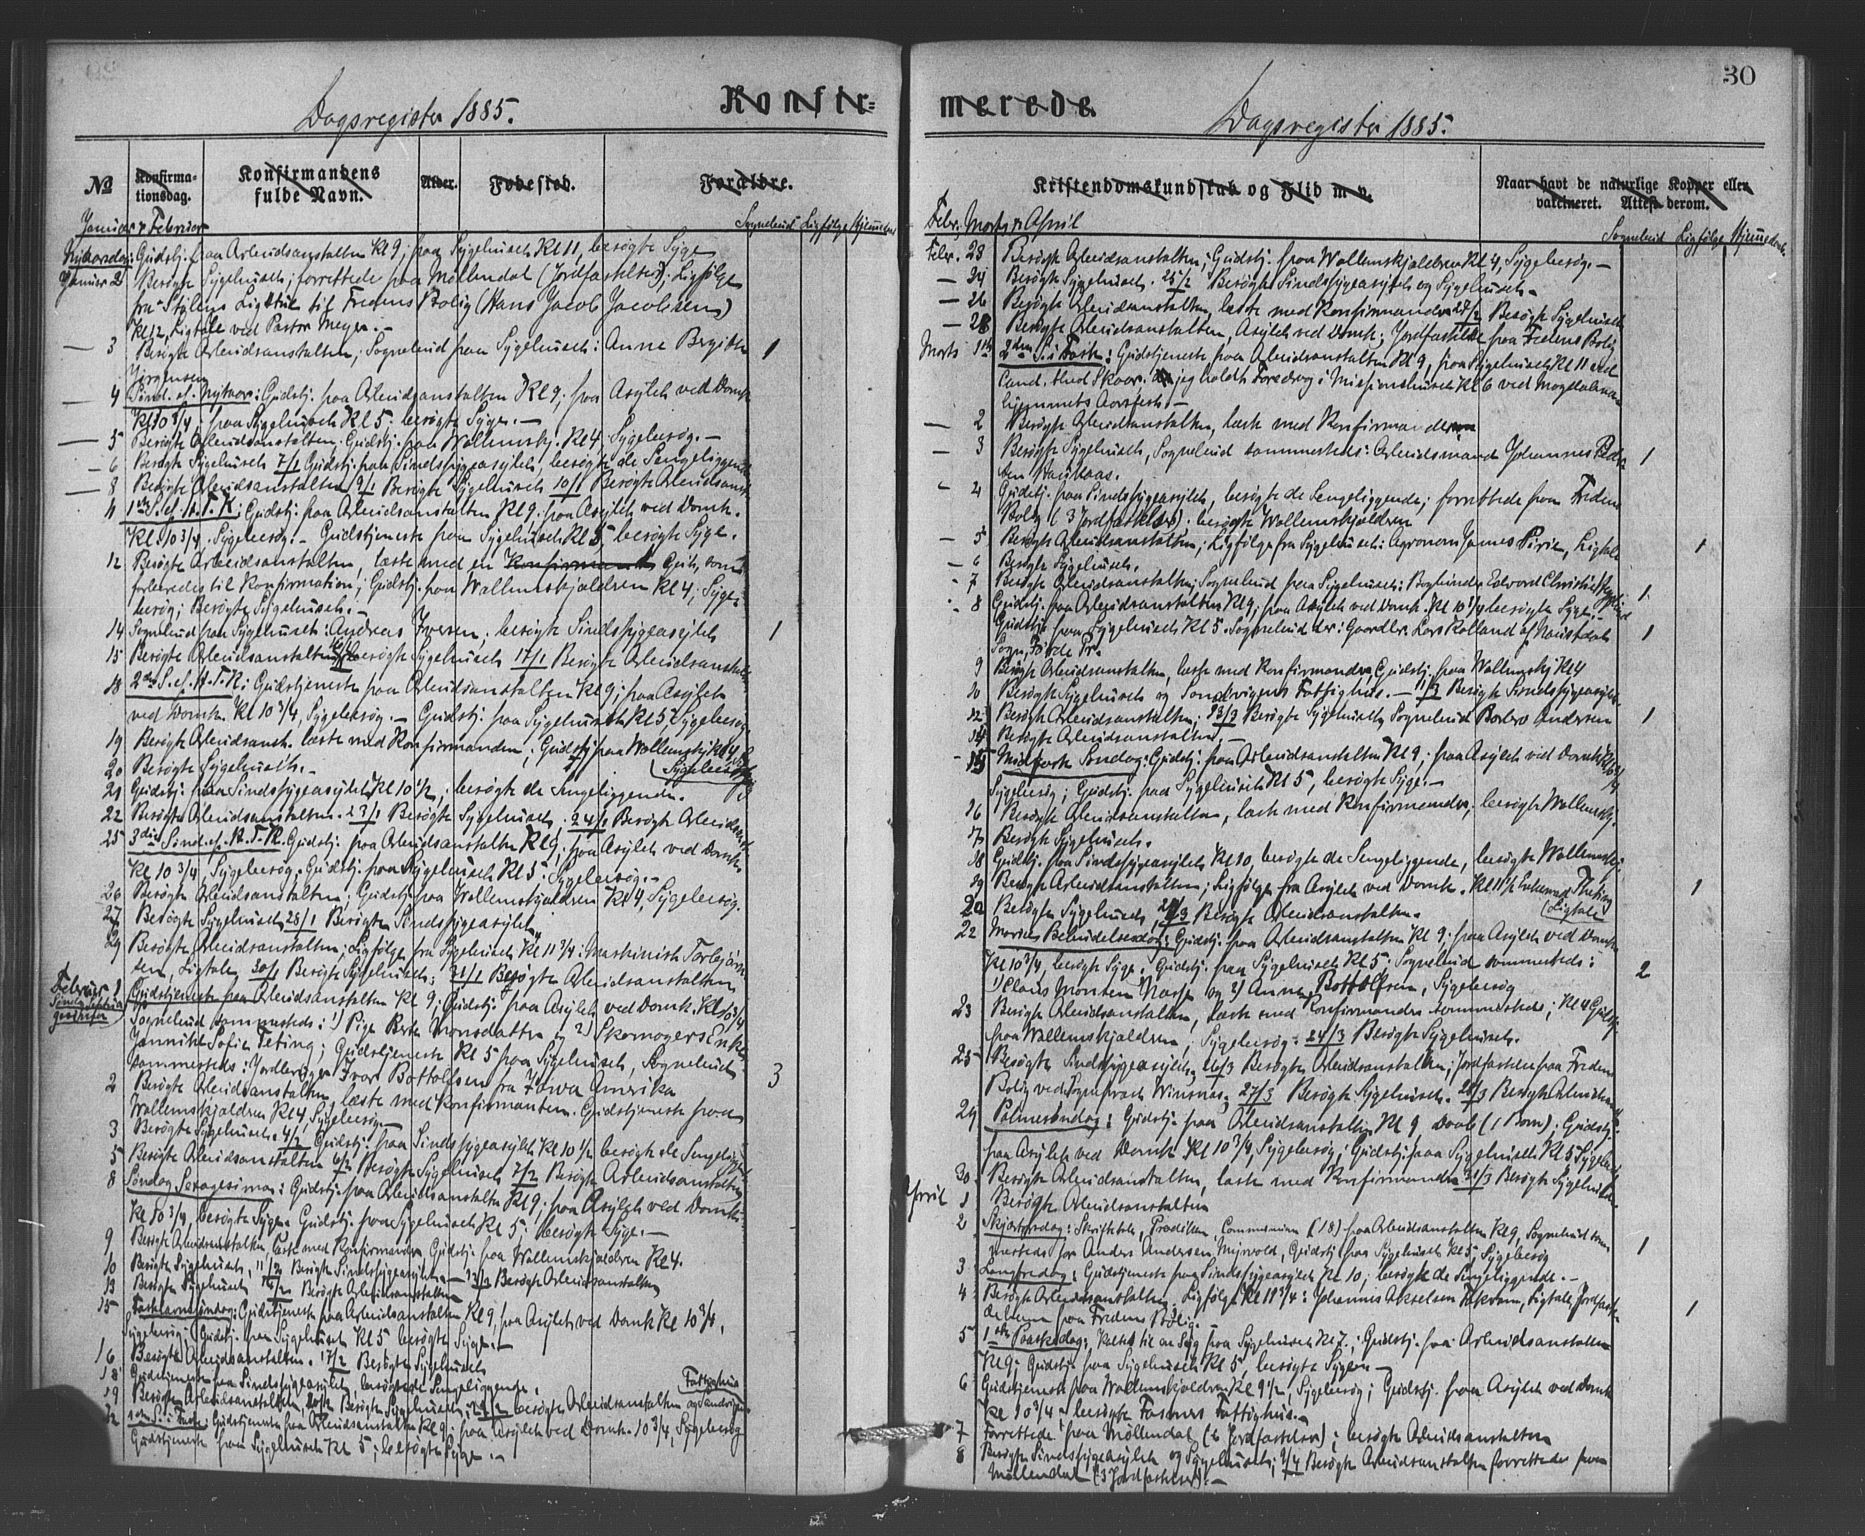 Dagsregister 1885.
Konfir=
No
Konfirma-
tionsdag.
Konfirmandens
fulde Navn.
Alder.
Fødested.
Forældre.
Januar & Februar
Sognebud Ligfølge Hjemmedaab
Nytaarsdag: Gudstj. paa Arbeidsanstalten Kl 9; paa Sygehuset Kl 11, besøgte Syge
Januar 2 Besøgte Sygehuset; forrettede paa Møllendal (Jordfæstelse); Ligfølge
fra Stiftens til Fredens Bolig (Hans Jacob Jacobsen)
Kl 12, Ligtale ved Pastor Meyer. —
— 3 Besøgte Arbeidsanstalten; Sognebud paa Sygehuset: Anne Bergitte 1
Jørgensen
— 4 Sønd. ef. Nytaar: Gudstj. paa Arbeidsanstalten Kl 9; paa Asylet ved Domk.
Kl 10 3/4; paa Sygehuset Kl 5; besøgte Syge. —
— 5 Besøgte Arbeidsanstalten; Gudstj. paa Wallemskj. Kl 4, Sygebesøg. —
— 6 Besøgte Sygehuset 7/1 Gudstj. paa Sindssygeasylet, besøgte de Sengeliggende
— 8 Besøgte Arbeidsanstalten 9/1 Besøgte Sygehuset 10/1 Besøgte Arbeidsanst.
11 1ste S. ef. H. T. K.: Gudstj. paa Arbeidsanstalten Kl 9; paa Asylet ved Domk.
Kl. 10 3/4. Sygebesøg. — Gudstjeneste paa Sygehuset Kl 5, besøgte Syge.
12 Besøgte Arbeidsanstalten, læste med en Konfirmant Gut, som
forberedes til Konfirmation; Gudstj. paa Wallemskjældren Kl 4; Syge-
besøg; Besøgte Sygehuset. —
14 Sognebud paa Sygehuset: Andreas Iversen; besøgte Sindssygeasylet 1
15 Besøgte Arbeidsanstalten 16/1 besøgte Sygehuset 17/1 Besøgte Arbeidsanstalten
18 2den S. ef. H. T. K.: Gudstjeneste paa Arbeidsanstalten Kl 9; paa Asylet
ved Domk. Kl 10 3/4, Sygebesøg. — Gudstj. paa Sygehuset Kl 5, Sygebesøg
19 Besøgte Arbeidsanst. læste med Konfirmanden; Gudstj. paa Wallemskj Kl 4,
20 Besøgte Sygehuset. — Sygebesøg
21 Gudstj. paa Sindssygeasylet Kl 10 1/2, besøgte de Sengeliggende.
22 Besøgte Arbeidsanstalten. 23/1 Besøgte Sygehuset. 24/1 Besøgte Arbeidsanst.
25 3die Sønd. ef. H. T. K. Gudstj. paa Arbeidsanstalten Kl 9; paa Asylet ved Domk.
Kl 10 3/4, Sygebesøg. Gudstj. paa Sygehuset Kl 5: Sygebesøg. —
26 Besøgte Arbeidsanstalten; Gudstj. paa Wallemskjældren Kl 4, Sygebesøg.
27 Besøgte Sygehuset 28/1 Besøgte Sindssygeasylet.
29 Besøgte Arbeidsanstalten; Ligfølge fra Sygehuset Kl 11 3/4: Maskinist Torbjørn-
sen, Ligtale. 30/1 Besøgte Sygehuset; 31/1 Besøgte Arbeidsanstalten,
Februar 1 Gudstjeneste paa Arbeidsanstalten Kl 9; Gudstj. paa Asylet ved Domk. Kl 10 3/4
Sognebud sammesteds: 1) Pige Berte Monsdatter og 2) Skomagers Enke
Jannikke Sofie Teting; Gudstjeneste Kl 5 paa Sygehuset, Sognebud
sammesteds: Jordbruger Ivar Bottolfsen fra Iowa Amerika 3
2 Besøgte Arbeidsanstalten, læste med Konfirmanten. Gudstjeneste paa
Wallemskjældren Kl 4, Sygebesøg —
3 Besøgte Sygehuset. 4/2 Gudstj. paa Sindssygeasylet Kl 10 1/2 besøgte de Sengeligg.
5 Besøgte Arbeidsanstalten 6/2 Besøgte Sygehuset 7/2 Besøgte Arbeidsanstalten
8 Søndag Sexagesima: Gudstj. paa Arbeidsanstalten Kl 9; paa Asylet ved Domk:
Kl 10 3/4, besøgte Syge. Gudstj. paa Sygehuset Kl 5; besøgte Syge. —
9 Besøgte Arbeidsanstalten, læste med Konfirmanden, Gudstj. paa Wallemskjældren Kl 4.
10 Besøgte Sygehuset. 11/2 Besøgte Sindssygeasylet. — 12/2 Besøgte Arbeidsanstalten
13 Besøgte Sygehuset 14/2 Besøgte Arbeidsanstalten
15 Fastelavnssøndag: Gudstjeneste paa Arbeidsanstalten Kl 9, paa Asylet ved Domk Kl 10 3/4,
Sygebesøg; Gudstj. paa Sygehuset Kl 5 besøgte Syge. —
16 Besøgte Arbeidsanstalten. 17/2 Besøgte Sygehuset
18 Gudstjeneste paa Sindssygeasylet, besøgte de Sengeliggende. Fattighus
19 Besøgte Arbeidsanstalten, 20/2 Besøgte Sygehuset; 21/2 besøgte Arbeidsanstalten og Sandvigens
22 1ste S. i Faste: Gudstjeneste paa Arbeidsanstalten Kl 9; paa Asylet ved Domk. 10 3/4, Sygebesøg
Gudstjeneste paa Sygehuset Kl 5; besøgte Syge. —
30
merede
Dagsregister 1885.
Kristendomskundskab og Flid m. v.
Naar havt de naturlige Kopper eller
vakcineret. Attest derom.
Febr. Marts & April
Sognebud Ligfølge Hjemmedaab
Febr. 23 Besøgte Arbeidsanstalten; Gudstj. paa Wallemskjældren Kl 4, Sygebesøg. —
— 24 Besøgte Sygehuset. 25/2 Besøgte Sindssygeasylet og Sygehuset. —
— 26 Besøgte Arbeidsanstalten, læste med Konfirmanden 27/2 Besøgte Sygehuset
— 28 Besøgte Arbeidsanstalten, Asylet ved Domk; Jordfæstelse paa Fredens Bolig
Marts 1ste 2den S. i Faste: Gudstjeneste paa Arbeidsanstalten Kl 9, paa Sygehuset Kl 11 ved
Cand. theol Skaar. jeg holdt Foredrag i Missionshuset Kl 6 ved Magdalena-
hjemmets Aarsfest. —
— 2 Besøgte Arbeidsanstalten, læste med Konfirmanderne
— 3 Besøgte Sygehuset, Sognebud sammesteds: Arbeidsmand Johannes Peder- 1
sen Haukaas.
— 4 Gudstj. paa Sindssygeasylet, besøgte de Sengeliggende; forrettede paa Fredens
Bolig (3 Jordfæstelser). besøgte Wallemskjældren
— 5 Besøgte Arbeidsanstalten; Ligfølge fra Sygehuset: Agronom James Pirie, Ligtale 1
— 6 Besøgte Sygehuset.
— 7 Besøgte Arbeidsanstalten; Sognebud paa Sygehuset: Bogbinder Edvard Christie 1
— 8 Gudstj. paa Arbeidsanstalten Kl 9; paa Asylet ved Domk. Kl 10 3/4 besøgte Syge. —
Gudstj. paa Sygehuset Kl 5. Sognebud der: Gaardbr. Lars Kolland af Naustdal 1
Sogn, Førde Pr.
9 Besøgte Arbeidsanstalten, læste med Konfirmanden, Gudstj. paa Wallemskj Kl 4
10 Besøgte Sygehuset og Sandvigens Fattighus. — 11/3 Besøgte Sindssygeasylet
12 Besøgte Arbeidsanstalten; 13/3 Besøgte Sygehuset, Sognebud Barbro Andersen 1
14 Besøgte Arbeidsanstalten. —
— 15 Midfaste Søndag: Gudstj. paa Arbeidsanstalten Kl 9; paa Asylet ved Domk Kl 10 3/4
Sygebesøg; Gudstj. paa Sygehuset Kl 5, besøgte Syge. —
16 Besøgte Arbeidsanstalten, læste med Konfirmanden; besøgte Wallemskj.
17 Besøgte Sygehuset.
18 Gudstj. paa Sindssygeasylet Kl 10, besøgte de Sengeliggende, besøgte Wallemskj:
19 Besøgte Arbeidsanstalten; Ligfølge fra Asylet ved Domk. Kl 11 1/2 Enkemad. 1
20 Besøgte Sygehuset, 21/3 Besøgte Arbeidsanstalten. Ligtale
22 Mariæ Bebudelsesdag: Gudstj. paa Arbeidsanstalten Kl 9. paa Asylet ved Domk
Kl 10 3/4, besøgte Syge. Gudstj. paa Sygehuset Kl 5: Sognebud sammesteds: 2
1) Claus Monsen og 2) Anne Bottolfsen, Sygebesøg
23 Besøgte Arbeidsanstalten, læste med Konfirmanden sammesteds; Kl 4 Gudstj.
paa Wallemskjældren; Sygebesøg. 24/3 Besøgte Sygehuset.
25 Besøgte Sindssygeasylet, 26/3 Besøgte Arbeidsanstalten; Jordfæstelse paa Fredens
Bolig ved Sogneprest Winsnes. 27/3 Besøgte Sygehuset. 28/3 Besøgte Arbeidsanst.
29 Palmesøndag: Gudstj. paa Arbeidsanstalten Kl 9 Daab (1 Barn); Gudstj.
paa Asylet ved Domk Kl 10 3/4, Sygebesøg; Gudstj. paa Sygehuset Kl 5 Sygebes.
30 Besøgte Arbeidsanstalten, læste med Konfirmanden 31/3 Besøgte Sygehuset
April 1 Besøgte Arbeidsanstalten
2 Skjærtorsdag: Skriftetale, Prædiken, Communion (18) paa Arbeidsanstalten Kl 9, Sognebud sam-
mesteds for Anders Andersen Mjøvold, Gudstj. paa Sygehuset Kl 5, Sygebesøg 1
3 Langfredag: Gudstjeneste paa Sindssygeasylet Kl 10; besøgte de Sengeliggende. —
4 Besøgte Arbeidsanstalten. Ligfølge Kl 11 3/4: Johannis Akselsen Ligtale, Jordfæst- 1
elserne paa Fredens Bolig. —
5 1ste Paaskedag: Kaldet til en Syg paa Sygehuset Kl 7. Gudstj. paa Arbeidsanstalten
Kl 9. Gudstj. paa Sygehuset Kl 5 besøgte Sygen —
6 Gudstjeneste paa Wallemskjældren Kl 9 1/2, Sygebesøg; Gudstj. paa Asylet ved Domk
Kl 10 3/4 besøgte Fattighus. —
7 Forrettede paa Møllendal (6 Jordfæstelser); besøgte Arbeidsanstalten
8 Besøgte Sindssygeasylet og Sygehuset; 9/4 Besøgte Arbeidsanstalten forrettede paa
Møllendal (3 Jordfæstelser). —